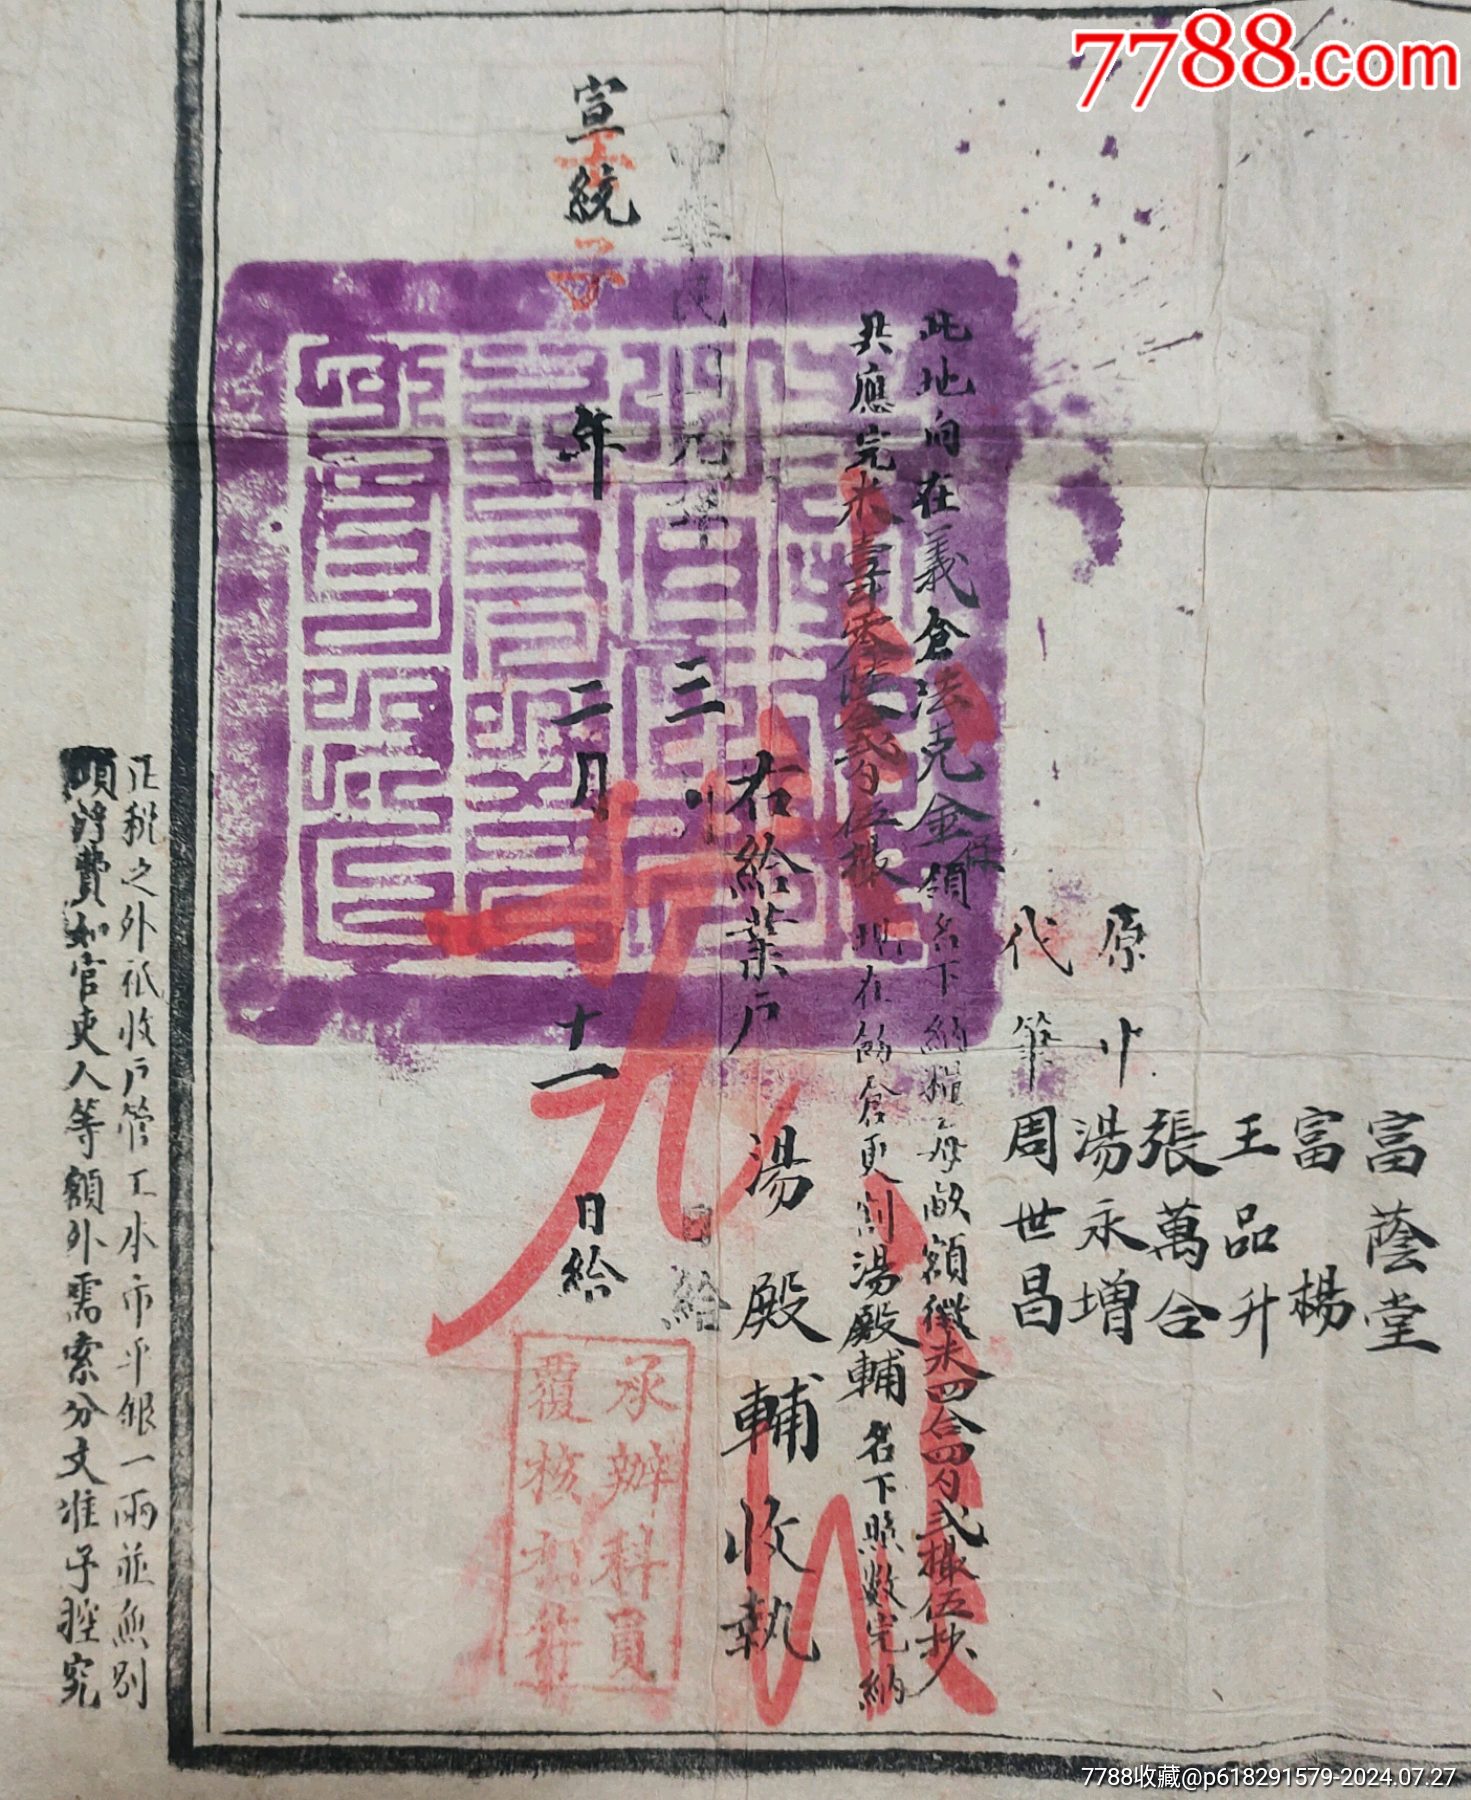 7788.com
富蔭堂
富楊
王品升
張萬合
原中 湯永增
代筆 周世昌
此地向在義倉法克金領名下納糧每畝額徵米四合四勺弍撮伍抄
共應完米壹零陸合弍勺伍撮 現在飭倉更割湯殿輔名下照數完納
右給業戶 湯殿輔 收執
中華民國元年 三月 日給
宣統 年 二月 十一 日給
壬子
十九
承辦科員
覆核相符
正稅之外祇收戶管工本市平銀一兩並無別
項經費如官吏人等額外需索分文准予控究
7788收藏@p618291579-2024.07.27